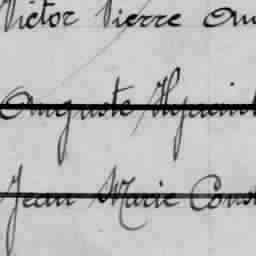 Victor Pierre
Auguste Hyacint
Jean Marie Cons